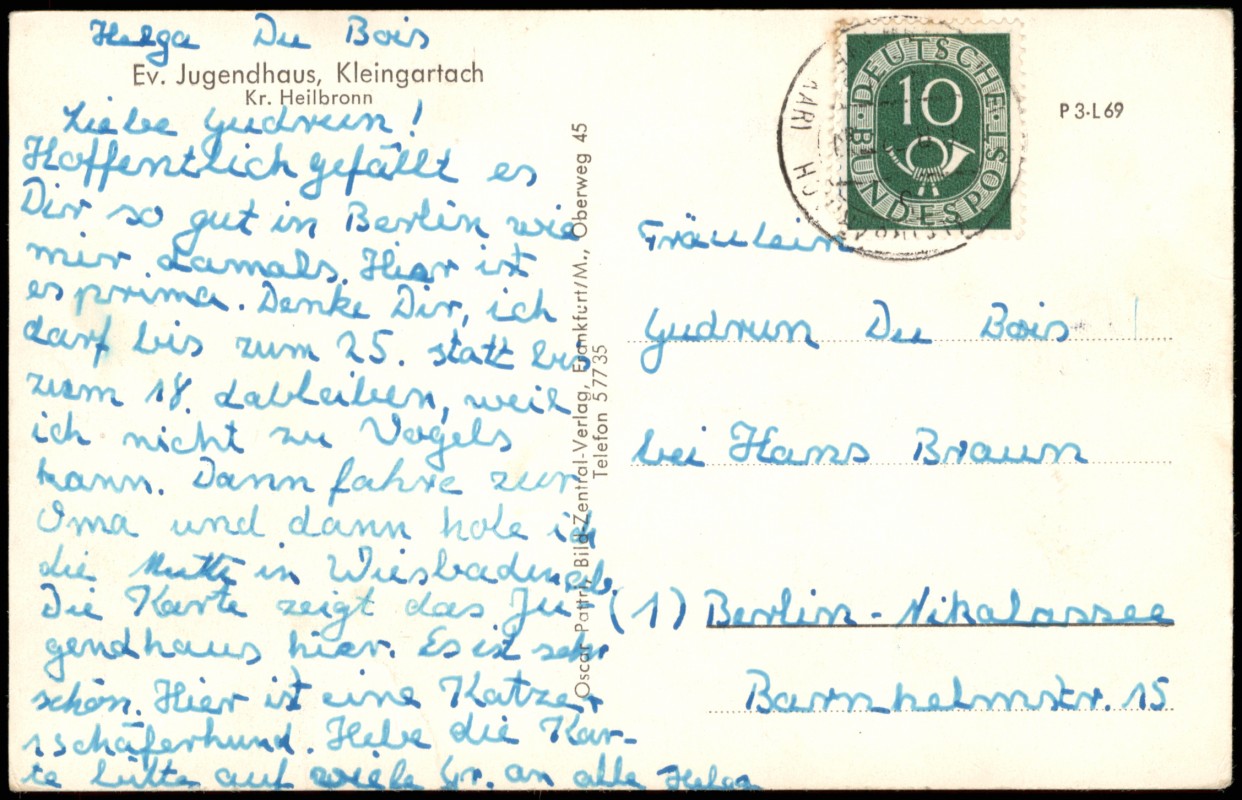 Helga Du Bois
Ev. Jugendhaus, Kleingartach
Kr. Heilbronn
Liebe Gudrun!
Hoffentlich gefällt es
Dir so gut in Berlin wie
mir damals. Hier ist
es prima. Denke Dir, ich
darf bis zum 25. statt bis
zum 18. dableiben, weil
ich nicht zu Vogels
kann. Dann fahre zur
Oma und dann hole ich
die Mutti in Wiesbaden ab.
Die Karte zeigt das Ju
gendhaus hier. Es ist sehr
schön. Hier ist eine Katze +
1 schäferhund. Hebe die Kar-
te bitte auf viele Gr. an alle Helga
Oscar Pattri, Bild-Zentral-Verlag, Frankfurt/M., Oberweg 45
Telefon 57735
DEUTSCHE BUNDESPOST
10
P 3·L 69
Fräulein
Gudrun Du Bois
bei Hans Braun
(1) Berlin-Nikolassee
Barnhelmstr. 15